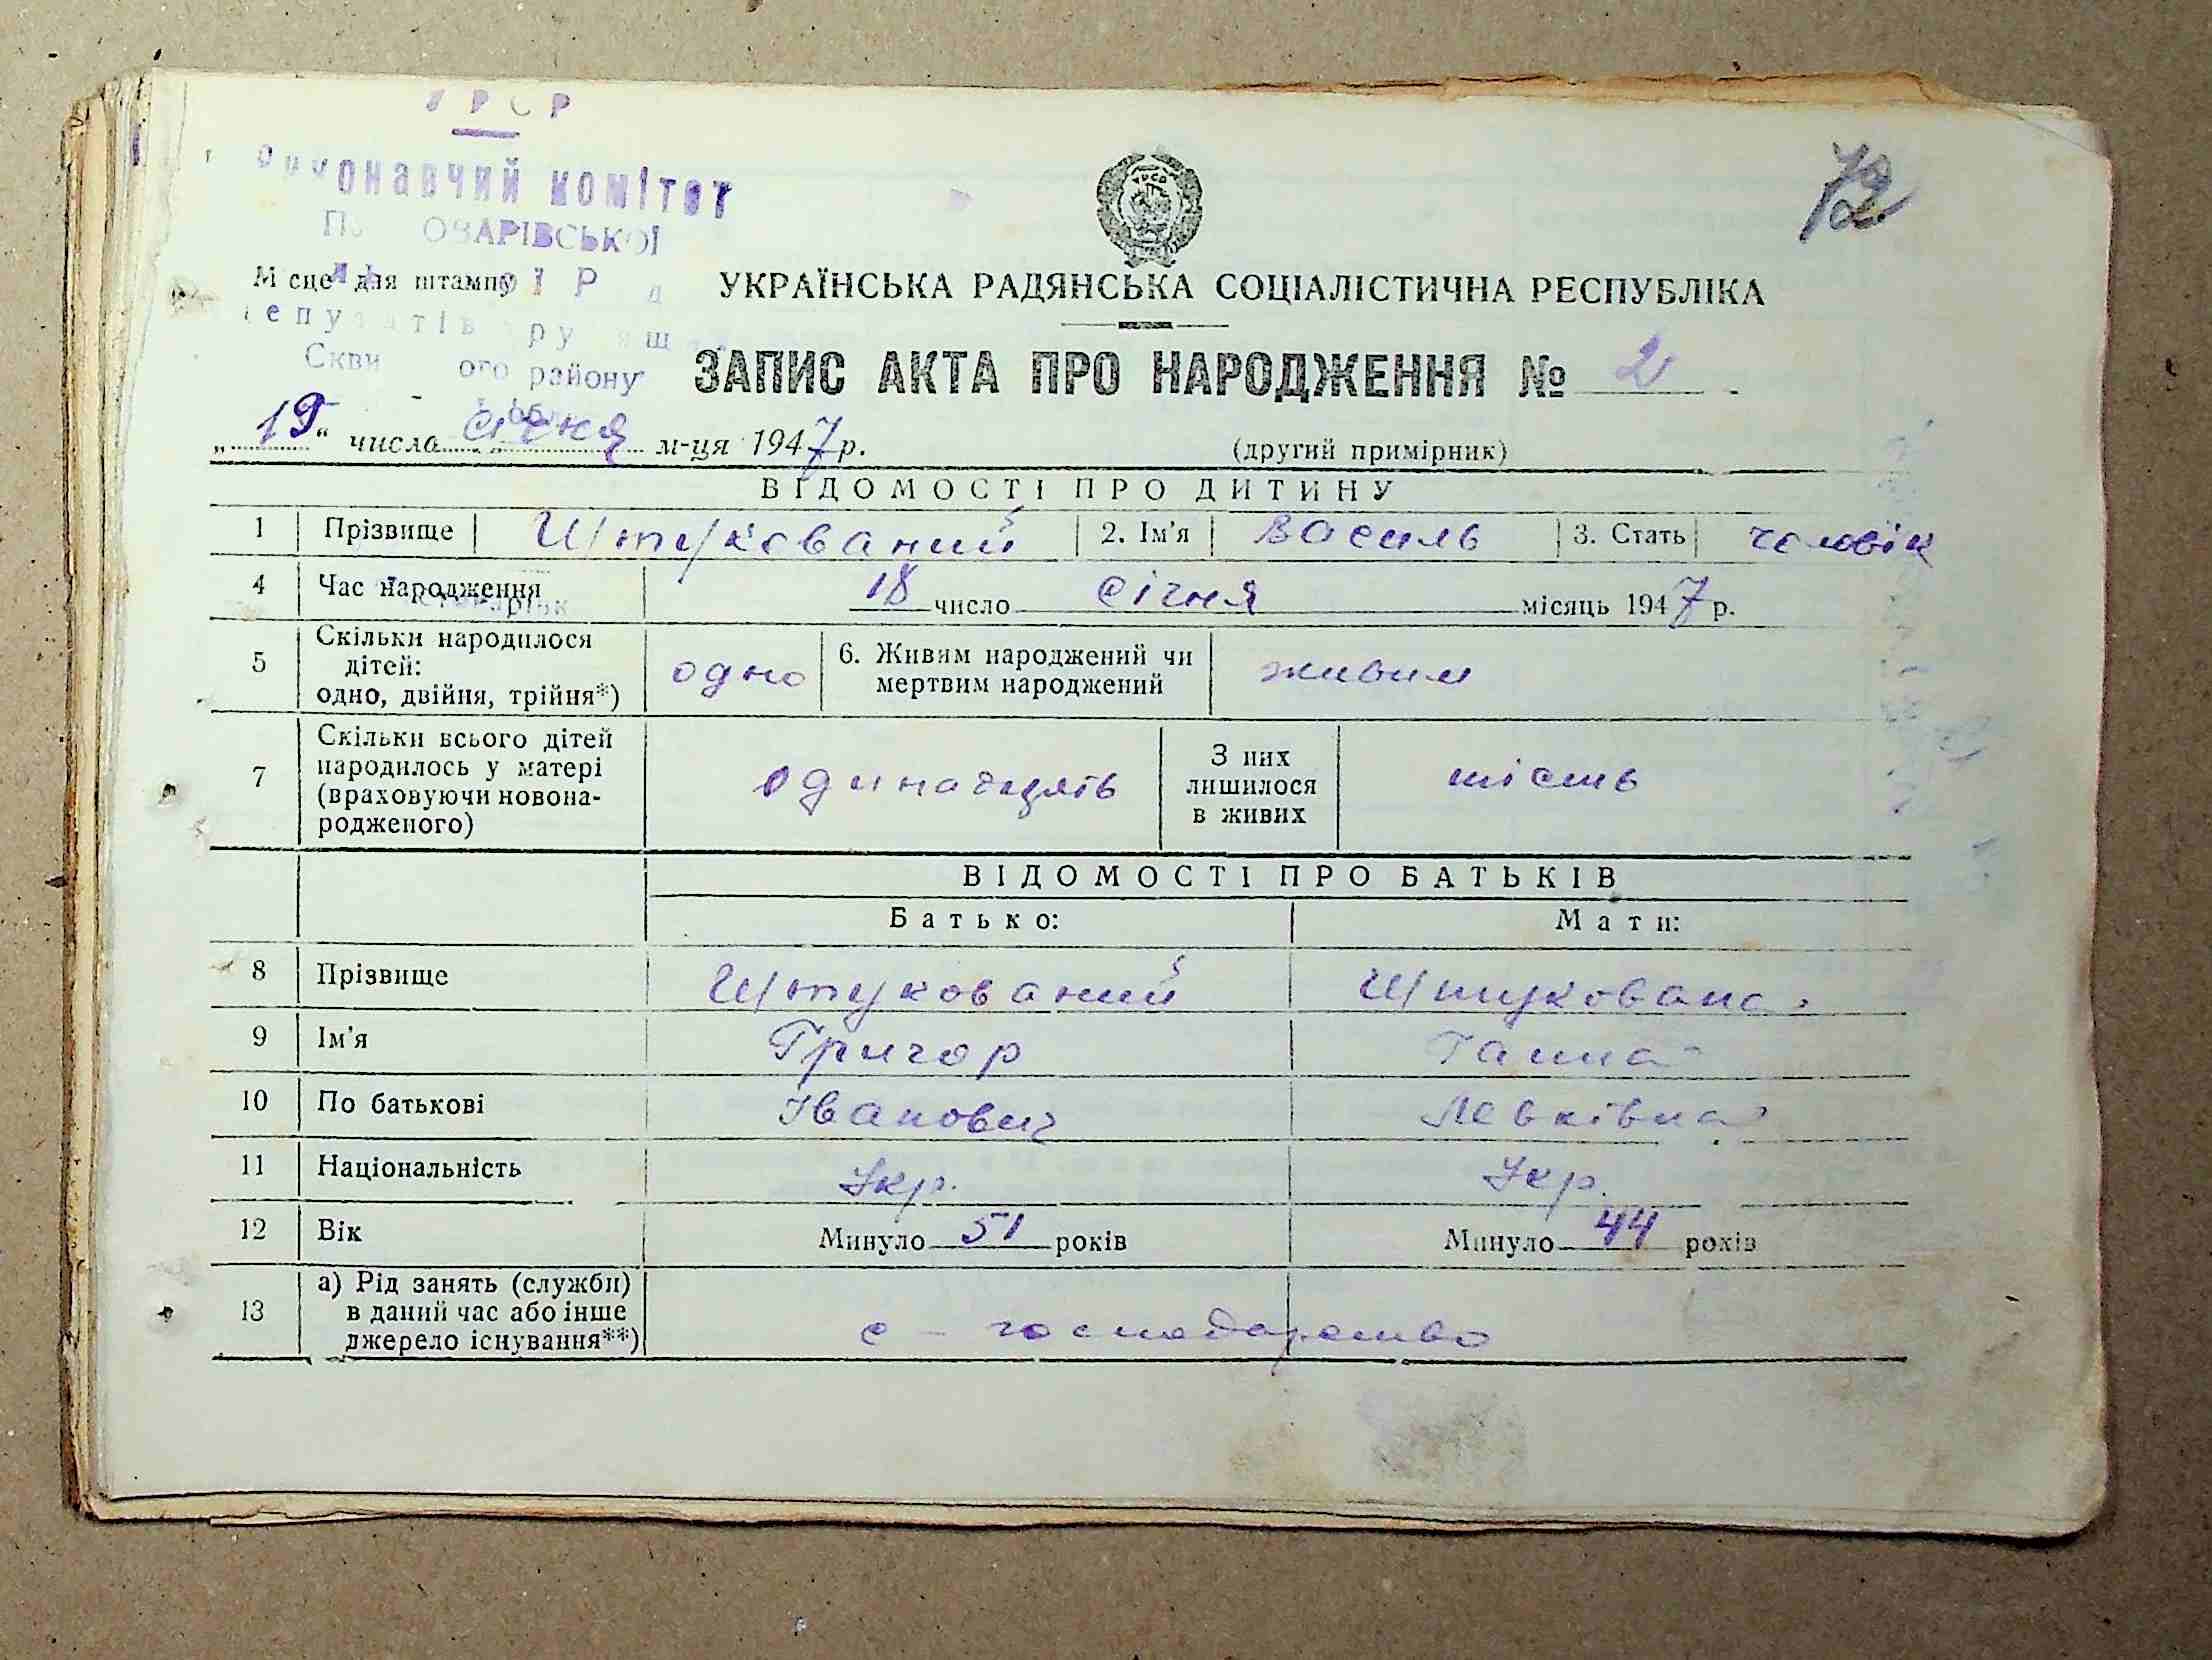 УРСР
72
Виконавчий комітет
ОВАРІВСЬКОЇ
Місце для штампу
УКРАЇНСЬКА РАДЯНСЬКА СОЦІАЛІСТИЧНА РЕСПУБЛІКА
депутатів трудящих
району
ЗАПИС АКТА ПРО НАРОДЖЕННЯ № 2
„19“ числа січня м-ця 1947 р.
(другий примірник)
ВІДОМОСТІ ПРО ДИТИНУ
1 Прізвище Штукований 2. Ім'я Василь 3. Стать чоловік
4 Час народження 18 число січня місяць 1947 р.
5 Скільки народилося дітей: одно, двійня, трійня*) одно 6. Живим народжений чи мертвим народжений живим
7 Скільки всього дітей народилось у матері (враховуючи новонародженого) одинадцять З них лишилося в живих шість
ВІДОМОСТІ ПРО БАТЬКІВ
Батько: Мати:
8 Прізвище Штукований Штукована
9 Ім'я Григор Ганна
10 По батькові Іванович Левківна
11 Національність Укр. Укр.
12 Вік Минуло 51 років Минуло 44 років
13 а) Рід занять (служби) в даний час або інше джерело існування**) с - господарство